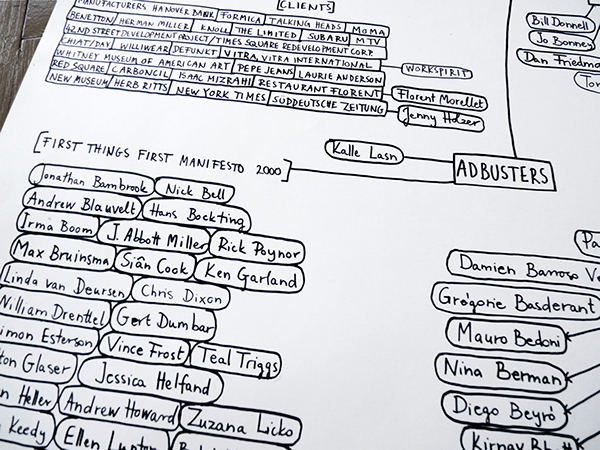 [CLIENTS]
MANUFACTURERS HANOVER BANK FORMICA TALKING HEADS MOMA
BENETTON HERMAN MILLER KNOLL THE LIMITED SUBARU MTV
42ND STREET DEVELOPMENT PROJECT/TIMES SQUARE REDEVELOPMENT CORP.
CHIAT/DAY WILLIWEAR DEFUNKT VITRA, VITRA INTERNATIONAL
WHITNEY MUSEUM OF AMERICAN ART PEPE JEANS LAURIE ANDERSON
RED SQUARE CARBONCIL ISAAC MIZRAHI RESTAURANT FLORENT
NEW MUSEUM HERB RITTS NEW YORK TIMES SÜDDEUTSCHE ZEITUNG
WORKSPIRIT
Florent Morellet
Jenny Holzer
Bill Donnell
Jo Bonney
Dan Friedma
[FIRST THINGS FIRST MANIFESTO 2000]
Kalle Lasn
ADBUSTERS
Jonathan Barnbrook Nick Bell
Andrew Blauvelt Hans Bockting
Irma Boom J. Abbott Miller Rick Poynor
Max Bruinsma Siân Cook Ken Garland
Linda van Deursen Chris Dixon
William Drenttel Gert Dumbar
Simon Esterson Vince Frost Teal Triggs
ton Glaser Jessica Helfand
n Heller Andrew Howard Zuzana Licko
Keedy Ellen Lupton
Pa
Damien Barroso Ve
Grégorie Basderant
Mauro Bedoni
Nina Berman
Diego Beyró